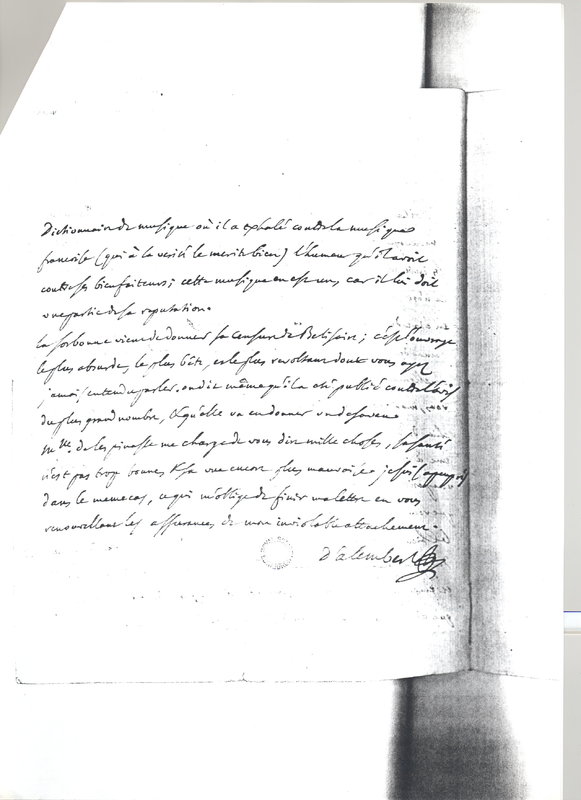 Dictionnaire de musique où il a exhalé contre la musique
francoise (qui à la verité le merite bien) l'humeur qu'il avoit
contre ses bienfaiteurs; cette musique en est un, car il lui doit
une partie de sa reputation.
la sorbonne vient de donner sa censure de Belisaire; c'est l'ouvrage
le plus absurde, le plus bête, et le plus revoltant dont vous ayez
jamais entendu parler. on dit même qu'il a été publié contre l'avis
du plus grand nombre, & qu'elle va en donner un desaveu.
Mlle. de lespinasse me charge de vous dire mille choses, sa santé
n'est pas trop bonne, & sa vue encore plus mauvaise; je suis
dans le meme cas, ce qui m'oblige de finir ma lettre en vous
renouvellant les assurances de mon inviolable attachement.
D'alembert